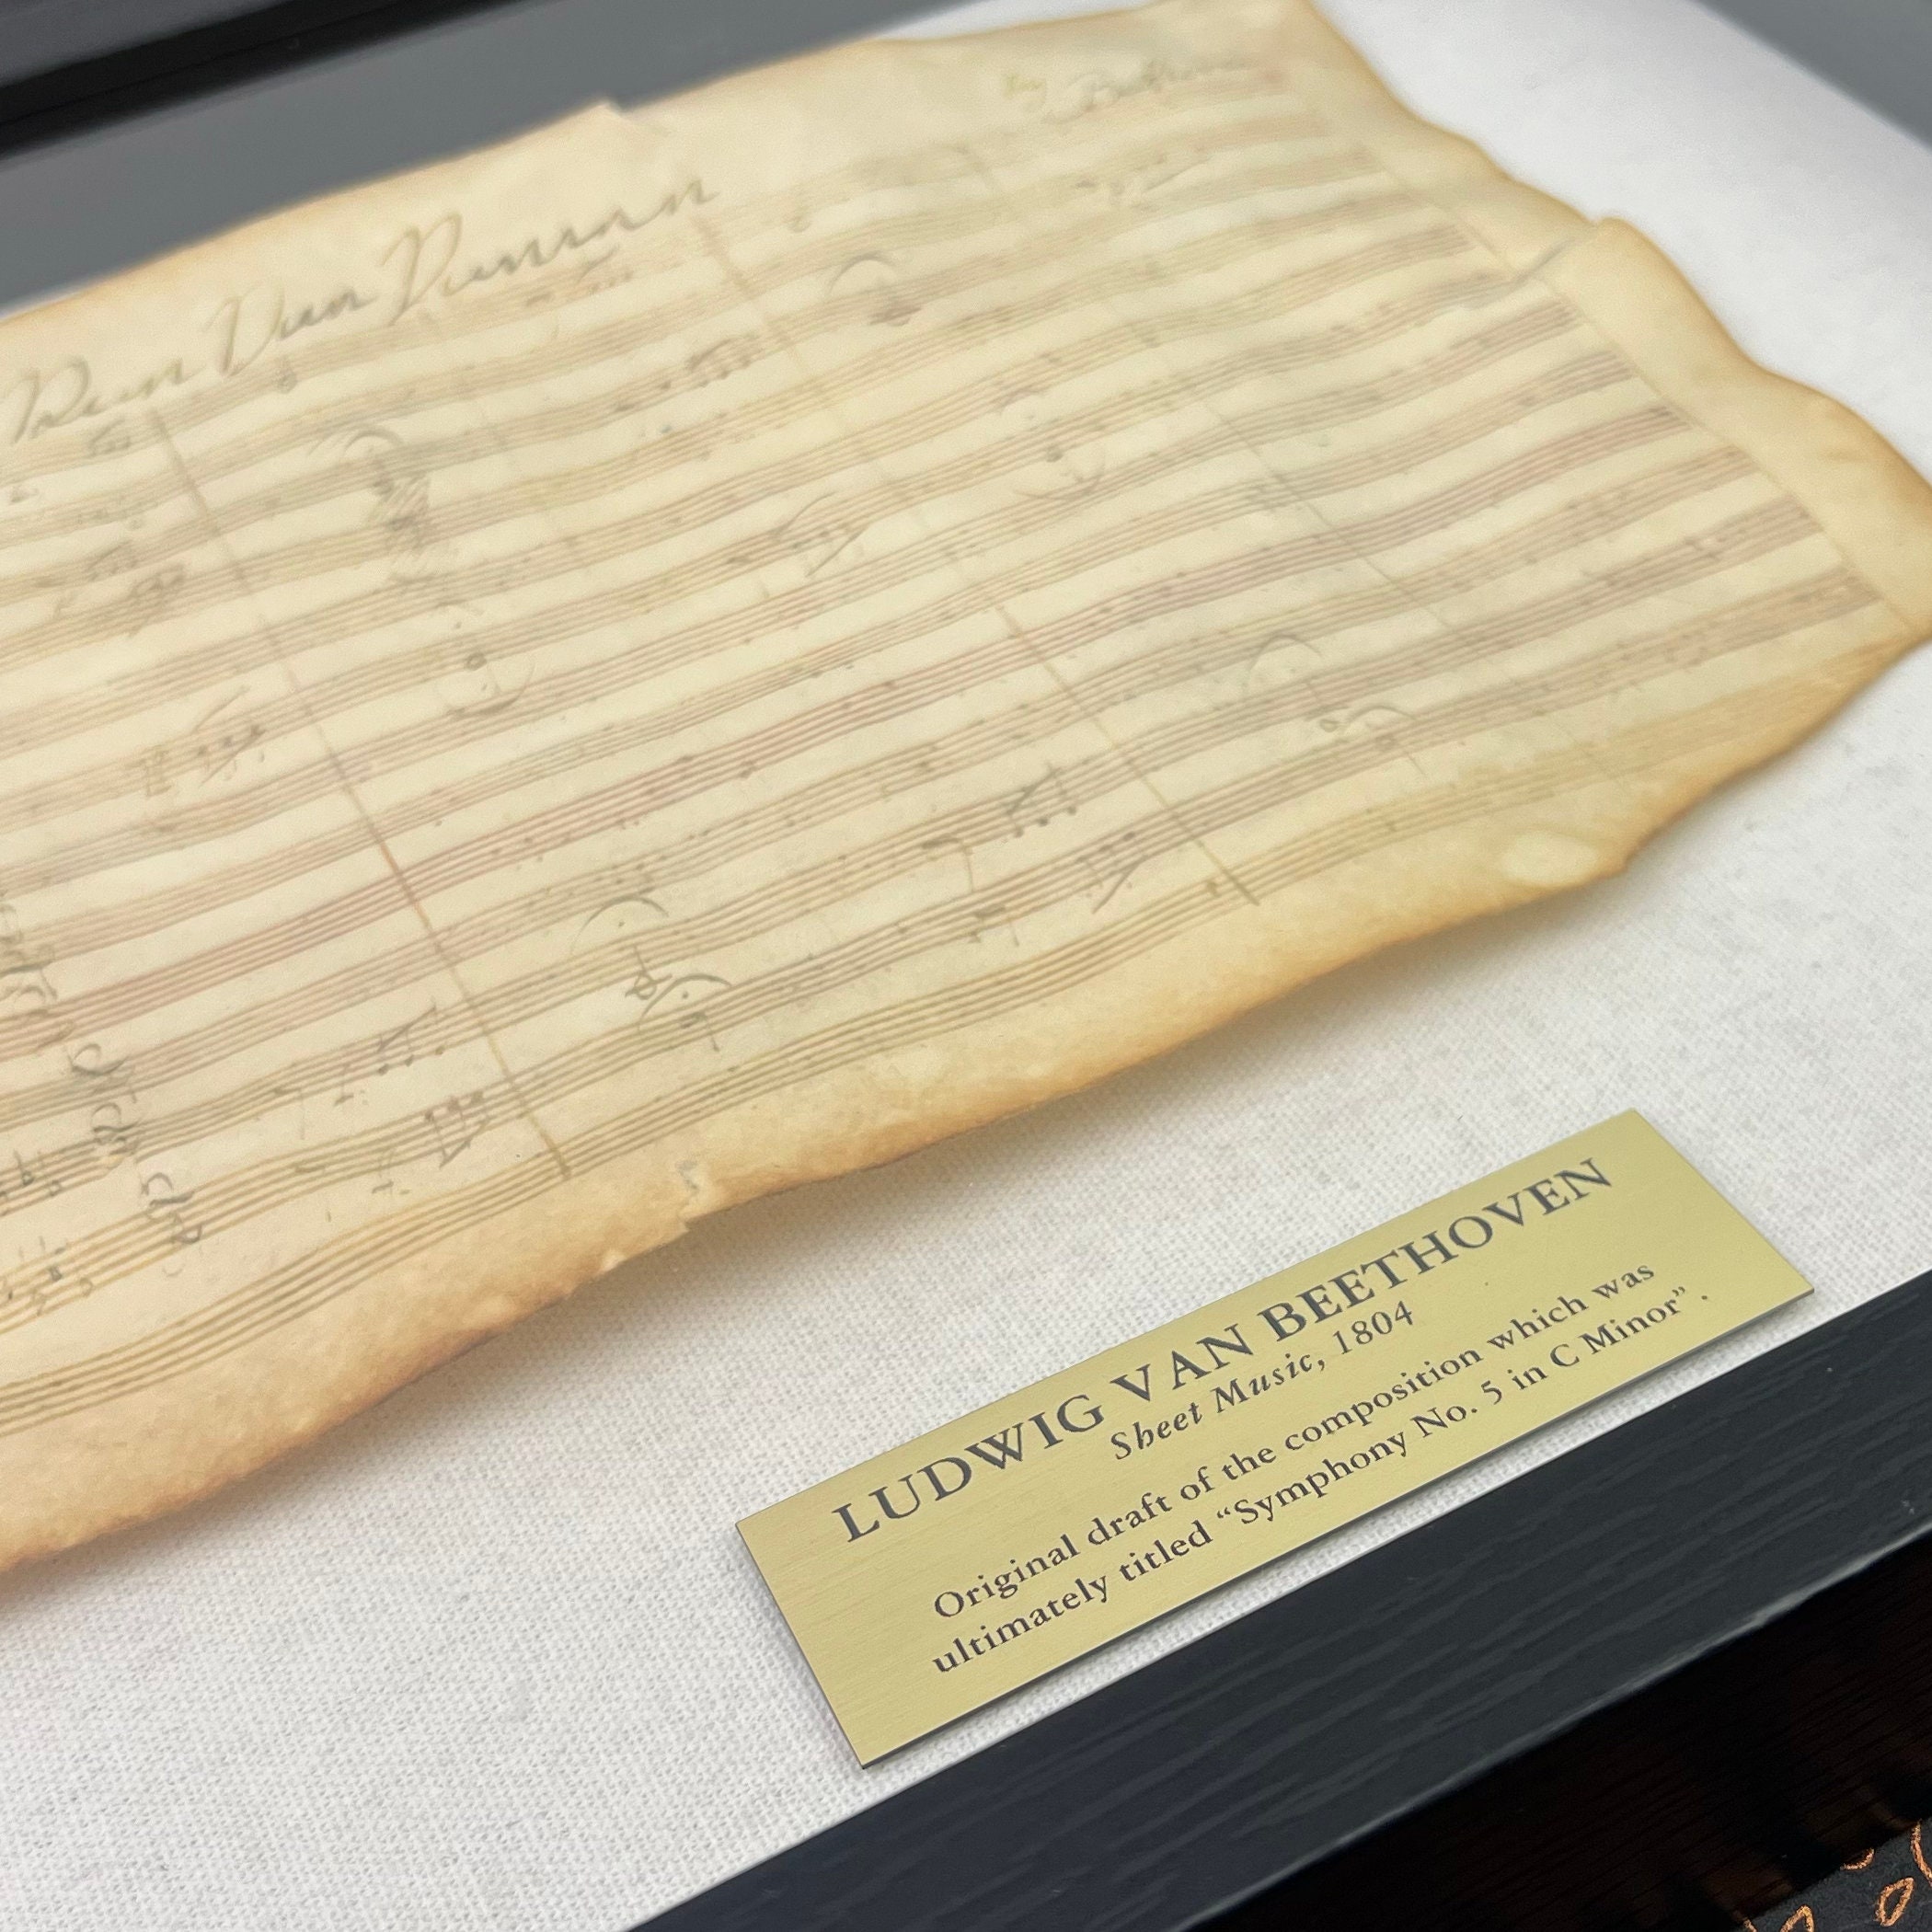 Dun Dun Dunnnn
by Beethoven
LUDWIG VAN BEETHOVEN
Sheet Music, 1804
Original draft of the composition which was
ultimately titled “Symphony No. 5 in C Minor”.